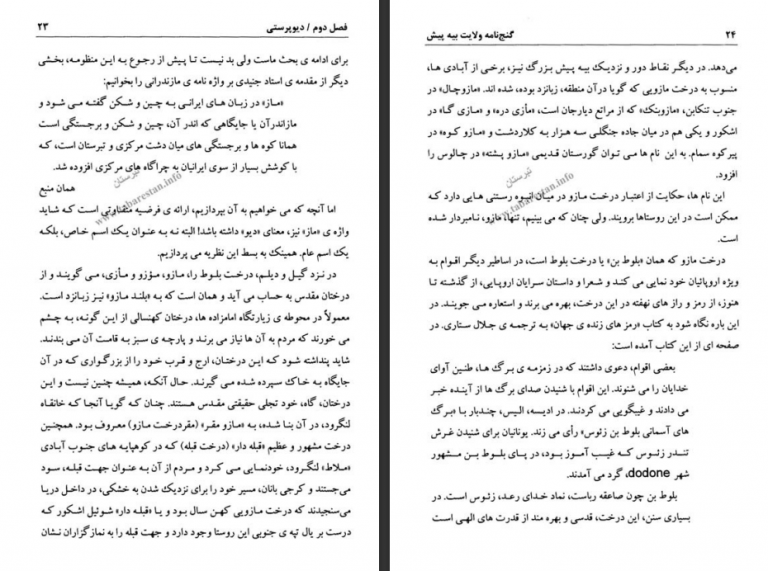 فصل دوم / دیوپرستی ۲۳
برای ادامه ی بحث ماست ولی بد نیست تا پیش از رجوع به این منظومه، بخشی
دیگر از مقدمه ی استاد جنیدی بر واژه نامه ی مازندرانی را بخوانیم:
«ماز» در زبان های ایرانی به چین و شکن گفته می شود و
مازاندرآن یا جایگاهی که اندر آن، چین و شکن و برجستگی است
همانا کوه ها و برجستگی های میان دشت مرکزی و تبرستان است، که
با کوشش بسیار از سوی ایرانیان به چراگاه های مرکزی افزوده شد.
همان منبع
اما آنچه که می خواهیم به آن بپردازیم، ارائه ی فرضیه متفاوتی است که شاید
واژه ی «ماز» نیز، معنای «دیو» داشته باشد! البته نه به عنوان یک اسم خاص، بلکه
یک اسم عام. همینک به بسط این نظریه می پردازیم.
در نزد گیل و دیلم، درخت بلوط را، مازو، مؤزو و مأزی، می گویند و از
درختان مقدس به حساب می آید و همان است که به «بلند مازو» نیز زبانزد است.
معمولاً در محوطه ی زیارتگاه امامزاده ها، درختان کهنسالی از این گونه، به چشم
می خورند که مردم به آن ها نیاز می برند و پارچه ی سبز به قامت آن می بندند.
شاید پنداشته شود که این درختان، ارج و قرب خود را از بزرگواری که در آن
جایگاه به خاک سپرده شده می گیرند. حال آنکه، همیشه چنین نیست و این
درختان، گاه، خود تجلی حقیقتی مقدس هستند. چنان که گویا آنجا که خانقاه
لنگرود، در آن بنا شده، به «مازو مقر» (مقردرخت مازو) معروف بود. همچنین
درخت مشهور و عظیم «قبله دار» (درخت قبله) که در کوهپایه های جنوب آبادی
«ملاط» لنگرود، خودنمایی می کرد و مردم از آن به عنوان جهت قبله، سود
می‌جستند و کرجی بانان، مسیر خود را برای نزدیک شدن به خشکی، در داخل دریا
می‌سنجیدند که درخت مازویی کهن سال بود و یا «قبله دار» شوئیل اشکور که
درست بر یال تپه ی جنوبی این روستا وجود دارد و جهت قبله را به نمازگزاران نشان
۲۴ گنج‌نامه ولایت بیه پیش
می‌دهد. در دیگر نقاط دور و نزدیک بیه پیش بزرگ نیز، برخی از آبادی ها،
منسوب به درخت مازویی که گویا درآن منطقه، زبانزد بوده، شده اند. «مازوچال» در
جنوب تنکابن، «مازوبنک» از مراتع دیارجان است، «مأزی دره» و «مازی گا» در
اشکور و یکی هم در میان جاده جنگلی سه هزار به کلاردشت و «مازو کوه» در
پیرکوه سمام. به این نام ها می توان گورستان قدیمی «مازو پشته» در چالوس را
افزود.
این نام ها، حکایت از اعتبار درخت مازو در میان انبوه رستنی هایی دارد که
ممکن است در این روستاها برویند. ولی چنان که می بینیم، تنها، مازو، نامبردار شده
است.
درخت مازو که همان «بلوط بن» یا درخت بلوط است، در اساطیر دیگر اقوام به
ویژه اروپائیان خود نمایی می کند و شعرا و داستان سرایان اروپایی، از گذشته تا
هنوز، از رمز و راز های نهفته در این درخت، بهره می برند و استعاره می جویند. در
این باره نگاه شود به کتاب «رمز های زنده ی جهان» به ترجمه ی جلال ستاری. در
صفحه ای از این کتاب آمده است:
بعضی اقوام، دعوی داشتند که در زمزمه ی برگ ها، طنین آوای
خدایان را می شنوند. این اقوام با شنیدن صدای برگ ها از آینده خبر
می دادند و غیبگویی می کردند. در ادیسه، الیس، چندبار با «برگ
های آسمانی بلوط بن زئوس» رأی می زند. یونانیان برای شنیدن غرش
تندر زئوس که غیب آموز بود، در پای بلوط بن مشهور
شهر dodone، گرد می آمدند.
بلوط بن چون صاعقه رباست، نماد خدای رعد، زئوس است. در
بسیاری سنن، این درخت، قدسی و بهره مند از قدرت های الهی است
تبرستان
www.tabarestan.info
تبرستان
www.tabarestan.info